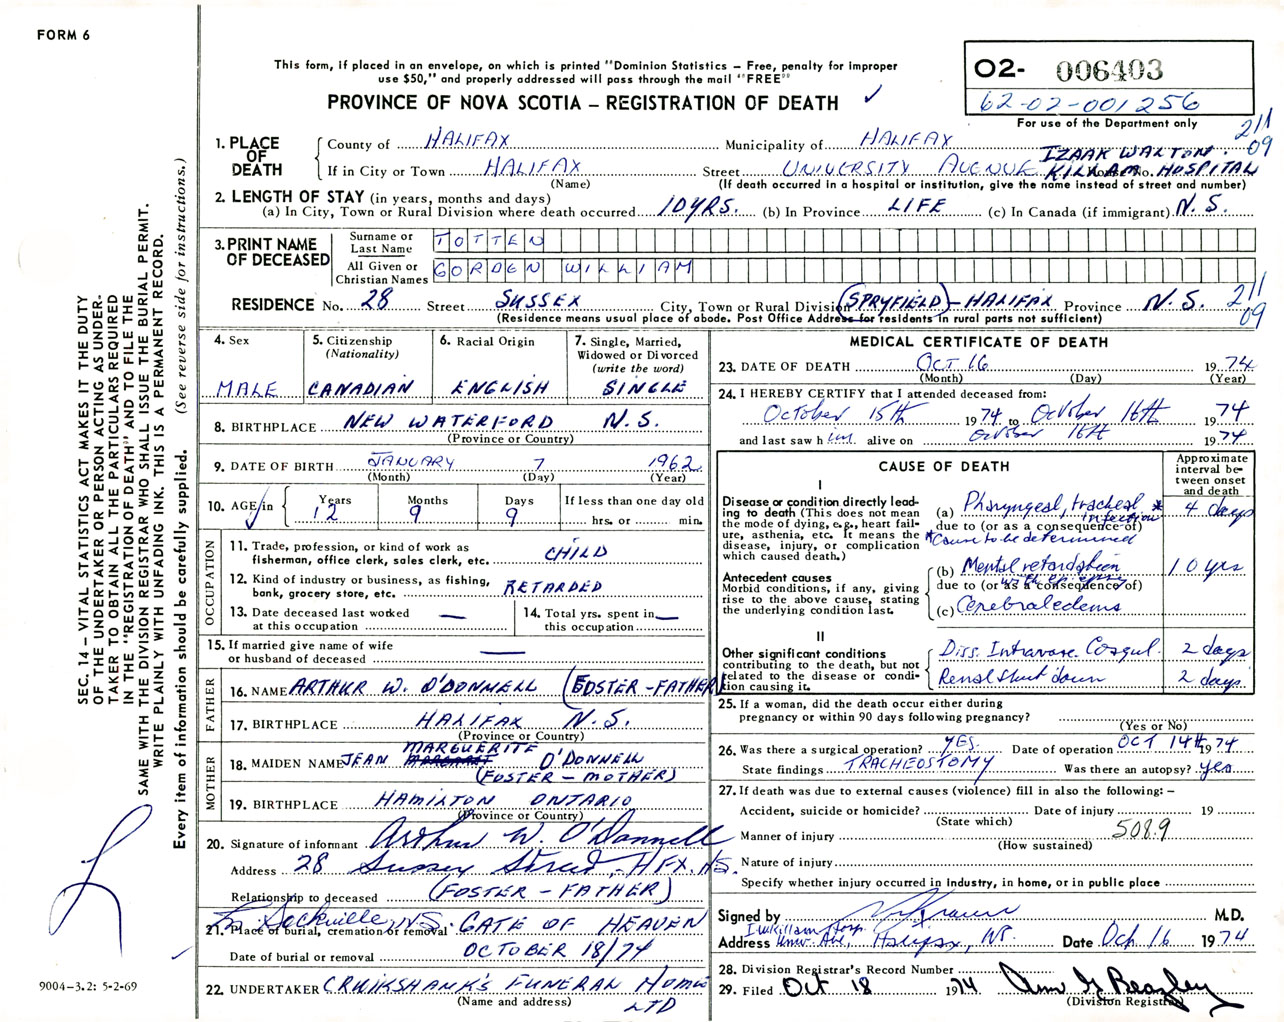 FORM 6
This form, if placed in an envelope, on which is printed "Dominion Statistics – Free, penalty for improper
use $50," and properly addressed will pass through the mail "FREE"
PROVINCE OF NOVA SCOTIA – REGISTRATION OF DEATH ✓
O2- 006403
62-02-001256
For use of the Department only
211
09
1. PLACE OF DEATH
County of HALIFAX Municipality of HALIFAX
If in City or Town HALIFAX Street UNIVERSITY AVENUE IZAAK WALTON KILLAM HOSPITAL
(Name) (If death occurred in a hospital or institution, give the name instead of street and number)
2. LENGTH OF STAY (in years, months and days)
(a) In City, Town or Rural Division where death occurred 10 YRS. (b) In Province LIFE (c) In Canada (if immigrant) N.S.
3. PRINT NAME OF DECEASED
Surname or Last Name TOTTEN
All Given or Christian Names GORDEN WILLIAM
RESIDENCE No. 28 Street SUSSEX City, Town or Rural Division (SPRYFIELD) – HALIFAX Province N.S. 211
09
(Residence means usual place of abode. Post Office Address for residents in rural parts not sufficient)
4. Sex
MALE
5. Citizenship
(Nationality)
CANADIAN
6. Racial Origin
ENGLISH
7. Single, Married,
Widowed or Divorced
(write the word)
SINGLE
8. BIRTHPLACE NEW WATERFORD N.S.
(Province or Country)
9. DATE OF BIRTH JANUARY 7 1962
(Month) (Day) (Year)
10. AGE in Years 12 Months 9 Days 9 If less than one day old
hrs. or min.
OCCUPATION
11. Trade, profession, or kind of work as
fisherman, office clerk, sales clerk, etc. CHILD
12. Kind of industry or business, as fishing,
bank, grocery store, etc. RETARDED
13. Date deceased last worked
at this occupation —
14. Total yrs. spent in
this occupation —
15. If married give name of wife
or husband of deceased —
FATHER
16. NAME ARTHUR W. O'DONNELL (FOSTER-FATHER)
17. BIRTHPLACE HALIFAX N.S.
(Province or Country)
MOTHER
MARGUERITE
18. MAIDEN NAME JEAN O'DONNELL
(FOSTER – MOTHER)
19. BIRTHPLACE HAMILTON ONTARIO
(Province or Country)
20. Signature of informant Arthur W. O'Donnell
Address 28 Sussex Street, HFX. N.S.
Relationship to deceased (FOSTER – FATHER)
Sackville, N.S.
21. Place of burial, cremation or removal GATE OF HEAVEN
Date of burial or removal OCTOBER 18/74
22. UNDERTAKER CRUIKSHANK'S FUNERAL HOME
LTD
(Name and address)
MEDICAL CERTIFICATE OF DEATH
23. DATE OF DEATH OCT 16 1974
(Month) (Day) (Year)
24. I HEREBY CERTIFY that I attended deceased from:
October 15th 1974 to October 16th 1974
and last saw him alive on October 16th 1974
CAUSE OF DEATH
Approximate interval between onset and death
I
Disease or condition directly leading to death (This does not mean the mode of dying, e.g., heart failure, asthenia, etc. It means the disease, injury, or complication which caused death.)
(a) Pharyngeal, tracheal * infection 4 days
due to (or as a consequence of)
*Cause to be determined
Antecedent causes
Morbid conditions, if any, giving rise to the above cause, stating the underlying condition last.
(b) Mental retardation 10 yrs
due to (or as a consequence of)
(c) Cerebral edema
II
Other significant conditions
contributing to the death, but not related to the disease or condition causing it.
Diss. Intravasc. Coagul. 2 days
Renal Shut down 2 days
25. If a woman, did the death occur either during
pregnancy or within 90 days following pregnancy?
(Yes or No)
26. Was there a surgical operation? YES Date of operation OCT 14th 1974
State findings TRACHEOSTOMY Was there an autopsy? yes
27. If death was due to external causes (violence) fill in also the following: –
Accident, suicide or homicide? Date of injury 19
(State which)
Manner of injury 508.9
(How sustained)
Nature of injury
Specify whether injury occurred in industry, in home, or in public place
Signed by M.D.
Address I.W. Killam Hosp. Univ. Ave, Halifax, NS. Date Oct 16 1974
28. Division Registrar's Record Number
29. Filed Oct 18 1974
(Division Registrar)
SEC. 14 – VITAL STATISTICS ACT MAKES IT THE DUTY
OF THE UNDERTAKER OR PERSON ACTING AS UNDER-
TAKER TO OBTAIN ALL THE PARTICULARS REQUIRED
IN THE "REGISTRATION OF DEATH" AND TO FILE THE
SAME WITH THE DIVISION REGISTRAR WHO SHALL ISSUE THE BURIAL PERMIT.
WRITE PLAINLY WITH UNFADING INK. THIS IS A PERMANENT RECORD.
Every item of information should be carefully supplied. (See reverse side for instructions.)
9004-3.2: 5-2-69